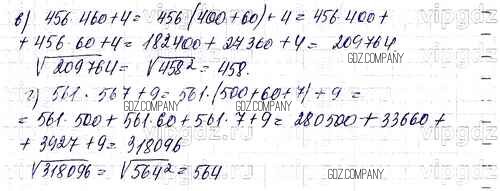 в) 456·460+4= 456·(400+60)+4=456·400+
+456·60+4=182400+27360+4= 209764
√209764= √458²=458.
г) 561·567+9=561·(500+60+7)+9=
=561·500+561·60+561·7+9=280500+33660+
+3927+9=318096
√318096=√564²=564.
GDZ.COMPANY
GDZ.COMPANY
GDZ.COMPANY
GDZ.COMPANY